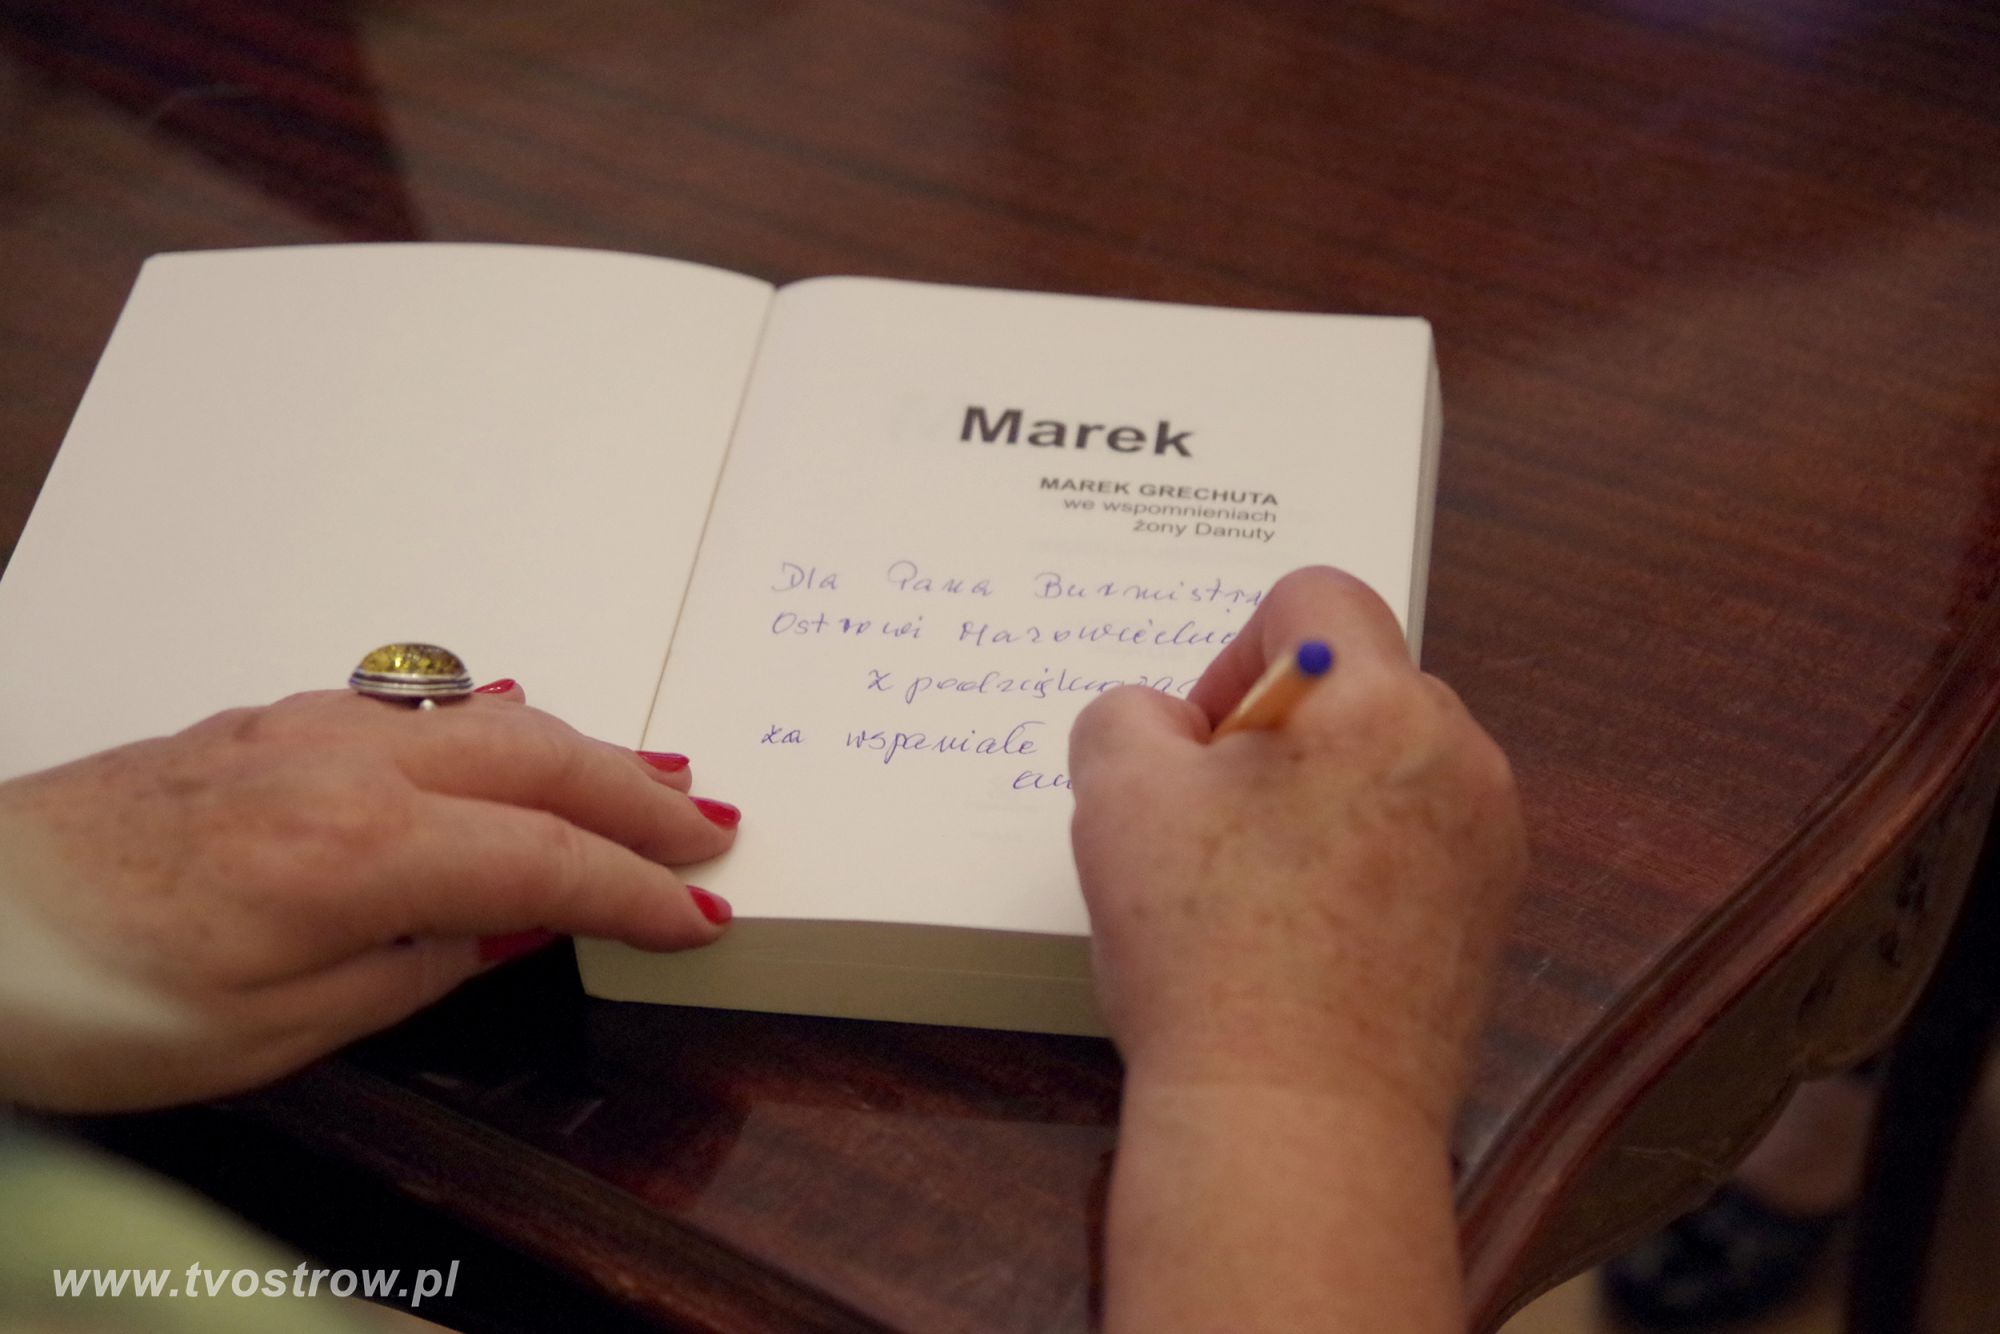 Marek
MAREK GRECHUTA
we wspomnieniach
żony Danuty
Dla Pana Burmistrza
Ostrowi Mazowieckiej
z podziękowa
za wspaniałe
www.tvostrow.pl